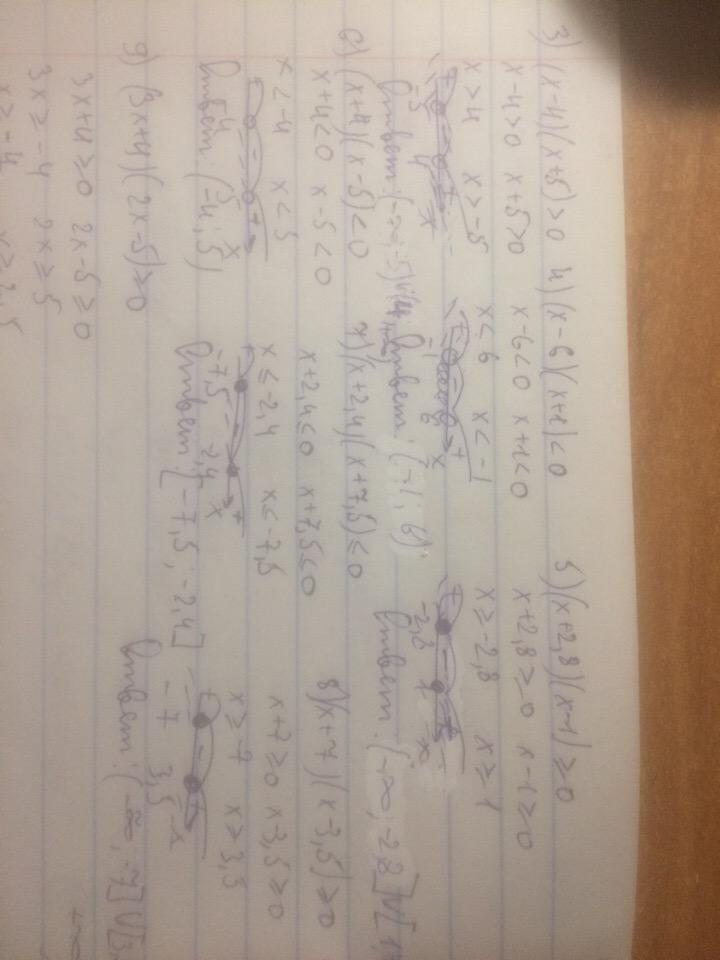 3) (x-4)(x+5)>0
x-4>0 x+5>0
x>4 x>-5
+ - +
-5 4 x
Ответ: (-∞; -5)∪(4; +∞)
4) (x-6)(x+1)<0
x-6<0 x+1<0
x<6 x<-1
+ - +
-1 6 x
Ответ: (-1; 6)
5) (x+2,8)(x-1)≥0
x+2,8≥0 x-1≥0
x≥-2,8 x≥1
+ - +
-2,8 1 x
Ответ: (-∞; -2,8]∪[1;
6) (x+4)(x-5)<0
x+4<0 x-5<0
x<-4 x<5
+ - +
-4 5 x
Ответ: (-4; 5)
7) (x+2,4)(x+7,5)≤0
x+2,4≤0 x+7,5≤0
x≤-2,4 x≤-7,5
+ - +
-7,5 -2,4 x
Ответ: [-7,5; -2,4]
8) (x+7)(x-3,5)≥0
x+7≥0 x-3,5≥0
x≥-7 x≥3,5
+ - +
-7 3,5 x
Ответ: (-∞; -7]∪[3,
9) (3x+4)(2x-5)≥0
3x+4≥0 2x-5≥0
3x≥-4 2x≥5
+∞